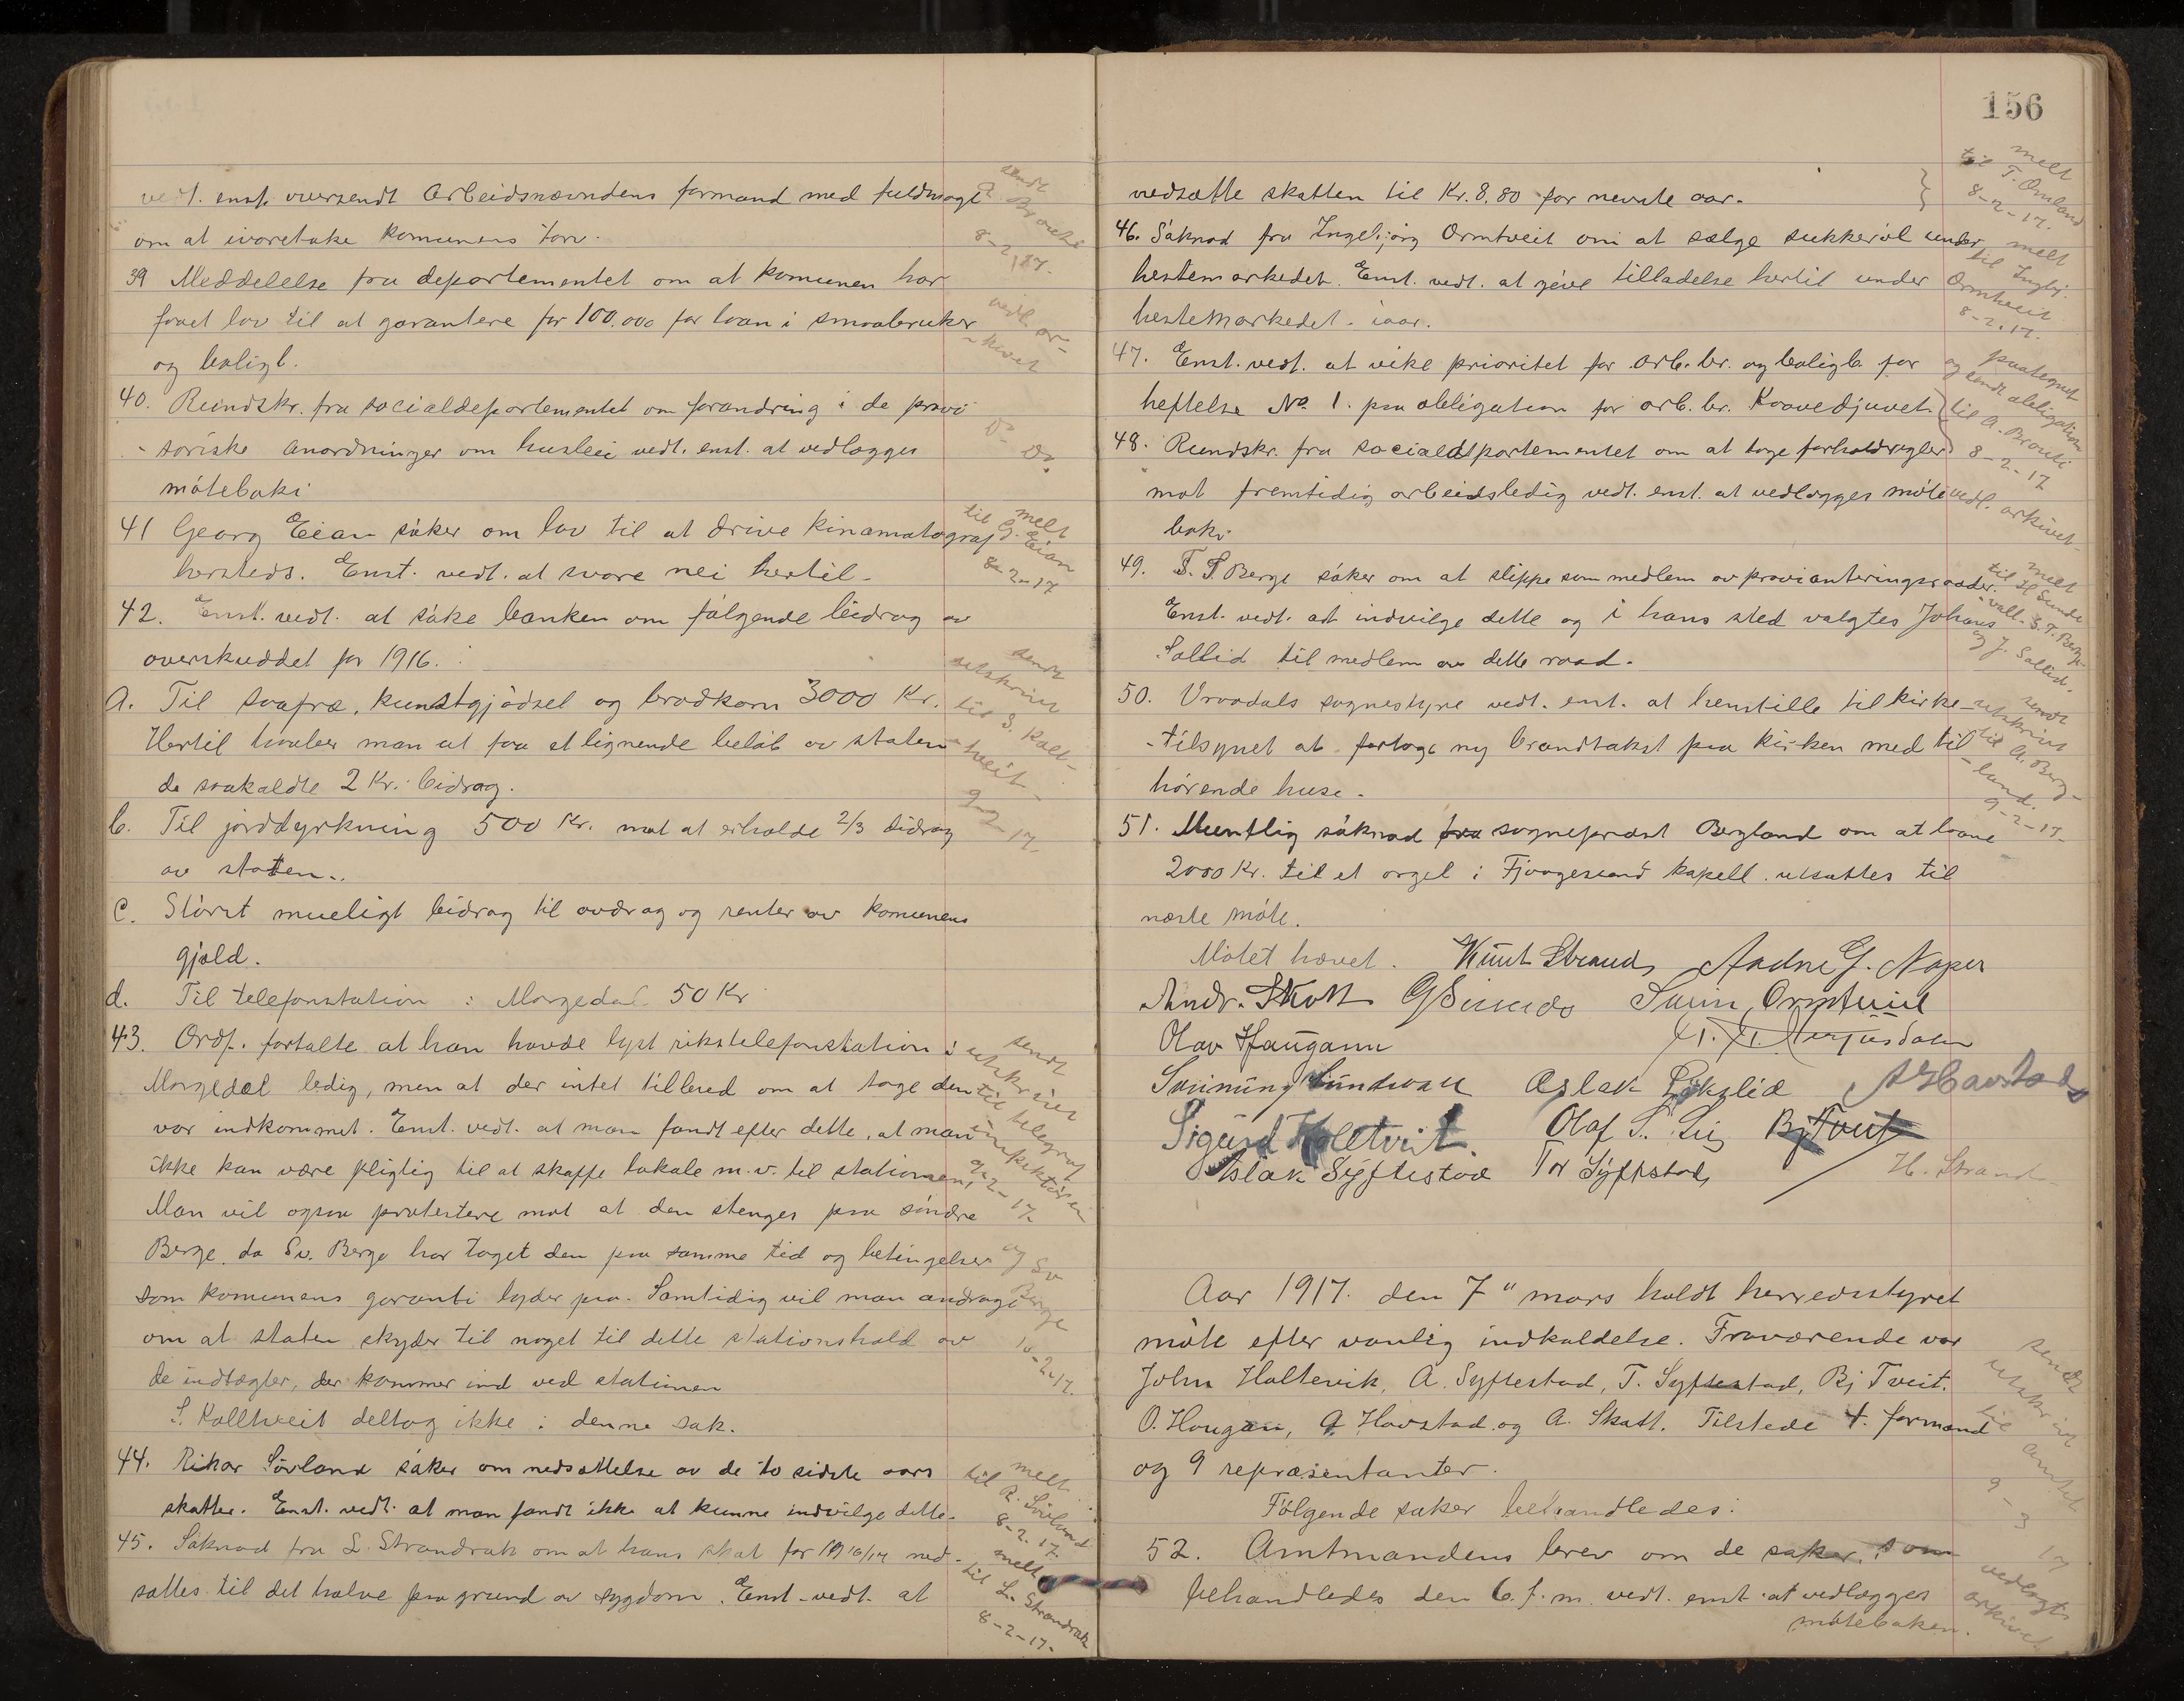 vedt. enst. oversendt Arbeidsnævndens formand med fuldmagt
om at ivaretake komunens tarv.
39 Meddelelse fra departementet om at komunen har
faaet lov til at garantere for 100.000 for laan i smaabruker
og boligb.
40. Rundskr. fra socialdepartementet om forandring i de provi
-soriske anordninger om husleie vedt. enst. at vedlægges
møteboki
41 Georg Eian søker om lov til at drive kinamatograf
hersteds. Enst. vedt. at svare nei hertil.
42. Enst. vedt. at søke banken om følgende bidrag av
overskuddet for 1916.
a. Til saafrø, kunstgjødsel og brødkorn 3000 Kr.
Hertil haaber man at faa et lignende beløb av staten
de saakaldte 2 Kr. bidrag.
b. Til jorddyrkning 500 Kr. mot at erholde 2/3 bidrag
av staten.
c. Størst mueligt bidrag til avdrag og renter av komunens
gjæld.
d. Til telefonstation i Morgedal 50 Kr
43. Ordf. fortalte at han havde lyst rikstelefonstation i
Morgedal ledig, men at der intet tilbud om at tage den
var indkommet. Enst. vedt. at man fandt efter dette, at man
ikke kan være pligtig til at skaffe lokale m.v. til stationen,
Man vil ogsaa protestere mot at den stenges paa søndre
Berge, da Sv. Berge har taget den paa samme tid og betingelser
som komunens garanti lyder paa. Samtidig vil man andrage
om at staten skyder til noget til dette stationshold av
de indtægter, der kommer ind ved stationen
S. Kolltveit deltog ikke i denne sak.
44. Rikar Sørland søker om nedsættelse av de to sidste aars
skatter. Enst. vedt. at man fandt ikke at kunne indvilge dette.
45. Søknad fra L. Strandrak om at hans skat for 1916/17 ned-
sættes til det halve paa grund av sygdom. Enst. vedt. at
sendt
A. Brouti
8-2-17.
vedl. ar-
-kivet
Do Do.
melt
til G. Eian
8-2-17
sendt
utskrivt
til S. Koll-
-tveit-
9-2-17.
sendt
utskrivt
til telegraf
inspektøren
9-2-17.
og Sv
Berge
10-2-17.
melt
til R. Sörland
8-2.17.
melt
til L. Strandrak
8-2-17.
156
nedsætte skatten til Kr. 8,80 for nevnte aar.
46. Søknad fra Ingebjørg Ormtveit om at sælge sukkerøl under
hestemarkedet. Enst. vedt. at give tilladelse hertil under
hestemarkedet iaar.
47. Enst. vedt. at vike prioritet for arb. br. og boligb. for
heftelse No 1. paa obligation for arb. br. Kaavedjuvet.
48. Rundskr. fra socialdpartementet om at tage forholdregler
mot fremtidig arbeidsledig vedt. enst. at vedlægges møte
boki
49. T. S Berge søker om at slippe som medlem av provianteringsraadet.
Enst. vedt. at indvilge dette og i hans sted valgtes Johans
Sollid til medlem av dette raad.
50. Vraadals sognestyre vedt. enst. at henstille til kirke-
-tilsynet at fortage ny brandtakst paa kirken med til
hørende huse.
51. Muntlig søknad fra sogneprest Bergland om at laane
2000 Kr. til et orgel i Fjaagesund kapell utsattes til
næste møte.
Møtet hævet. Knut Strand, Aadne G. Naper
Andr. Skott G Sundbø Svein Ormtveit
Olav Haugann
Sveinung Sundvall Aslak Lökslid A Havstad
Sigurd Kolltveit. Olaf S. Lid Bj Tveit
Aslak Syftestad Tor Syftestad, H. Strand
Aar 1917. den 7" mars holdt herredsstyret
møte efter vanlig indkaldelse. Fraværende var
John Haltevik, A. Syftestad, T. Syftestad, Bj Tveit.
O. Haugan, A Havstad og A. Skatt. Tilstede 4. formænd
og 9 repræsentanter.
Følgende saker behandledes:
52. Amtmandens brev om de saker, som
behandledes den 6. f. m. vedt. enst. at vedlægges
møteboken.
melt
til T. Omland
8-2-17.
melt
til Ingbj.
Ormtveit
8-2.17.
paategnet
og sendt obligation
til A. Brouti
8-2-17
vedl. arkivet-
melt
til H Sundbø
S. T. Berge
og J. Sollid.
sendt
utskrivt
til A. Berg-
-land.
9-2-17.
sendt
utskrivt
til Amtet
9-3 17
vedlagts
arkivet